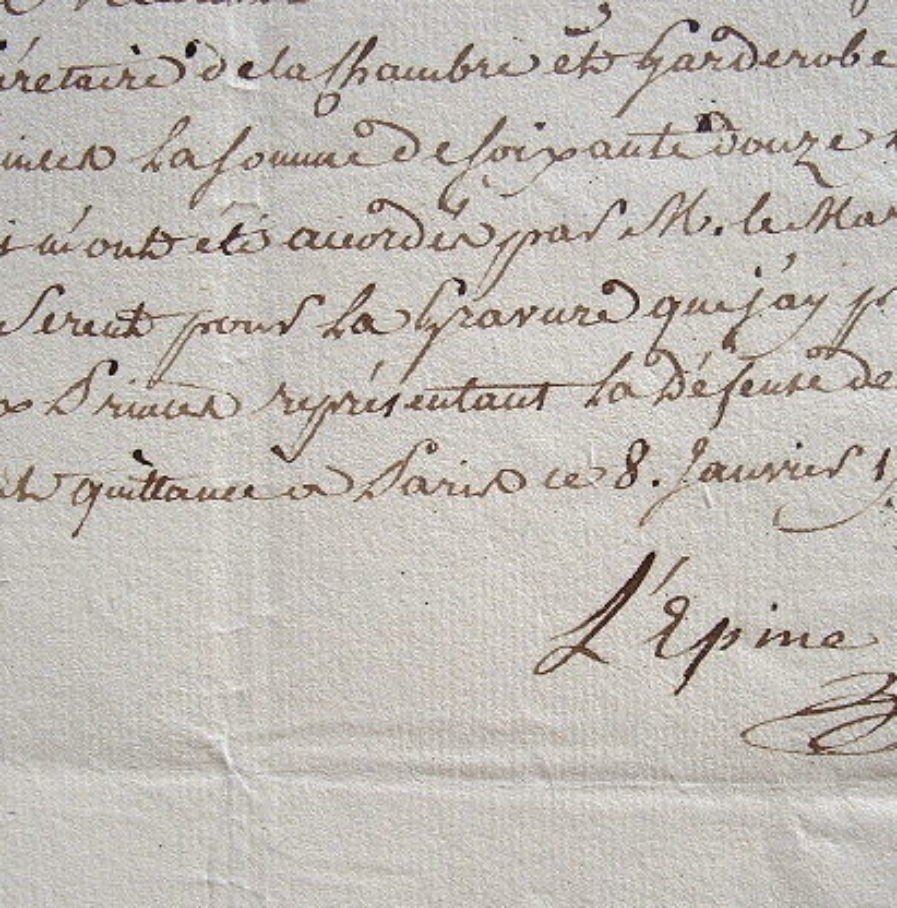 crétaire de la Chambre et Garderobe
inces La somme de soixante douze
m'ont été accordés par M. le Mar
Serent pour La Gravure que j'ay p
x Princes représentant La Défense de
quittance a Paris ce 8. Janvier 1
L'Epine